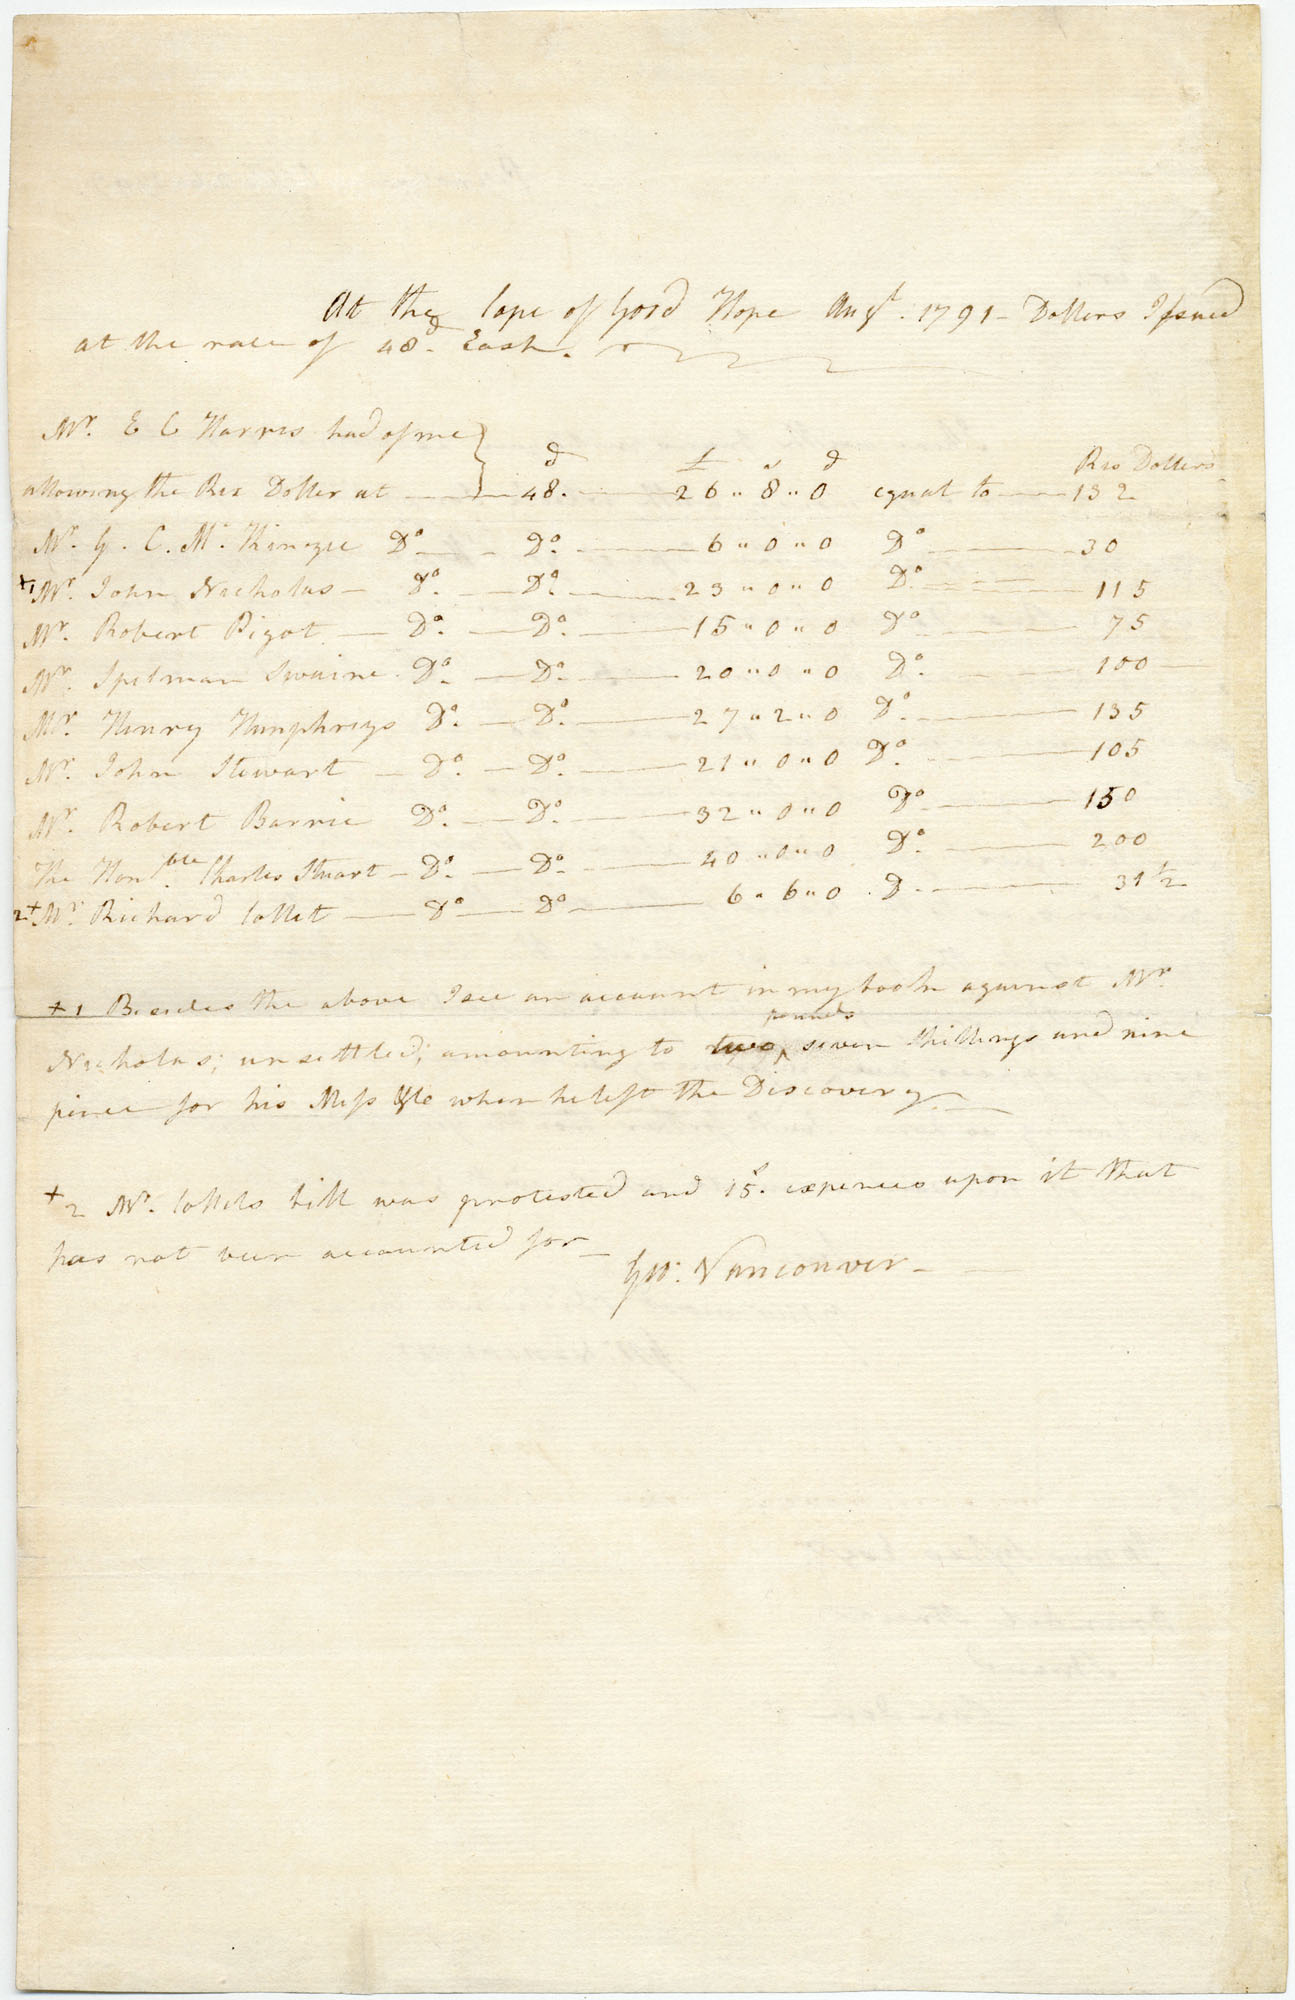 At the Cape of Good Hope Augt. 1791 - Dollers Issued
at the rate of 48d. Each.
Mr. E C Harris had of me
allowing the Rix Doller at 48.d £26 " s8 " d0 equal to Rix Dollers 132
Mr. G. C. Mc. Kinzie Do. Do. 6 " 0 " 0 Do 30
+1 Mr. John Nicholas Do. Do. 23 " 0 " 0 Do. 115
Mr. Robert Pigot Do. Do. 15 " 0 " 0 Do 75
Mr. Spelman Swaine Do. Do. 20 " 0 " 0 Do. 100
Mr. Henry Humphreys Do. Do. 27 " 2 " 0 Do. 135
Mr. John Stewart Do. Do. 21 " 0 " 0 Do. 105
Mr. Robert Barrie Do. Do. 32 " 0 " 0 Do. 150
The Honble. Charles Stuart Do. Do. 40 " 0 " 0 Do. 200
2+ Mr. Richard Collet Do Do 6 " 6 " 0 D. 31 1/2
+1 Besides the above I see an account in my book against Mr.
Nicholas; unsettled; amounting to two pounds seven shillings and nine
pence for his Mess &c when he left the Discovery
+2 Mr. Collets bill was protested and 15s. expences upon it that
has not been accounted for
Geo. Vancouver